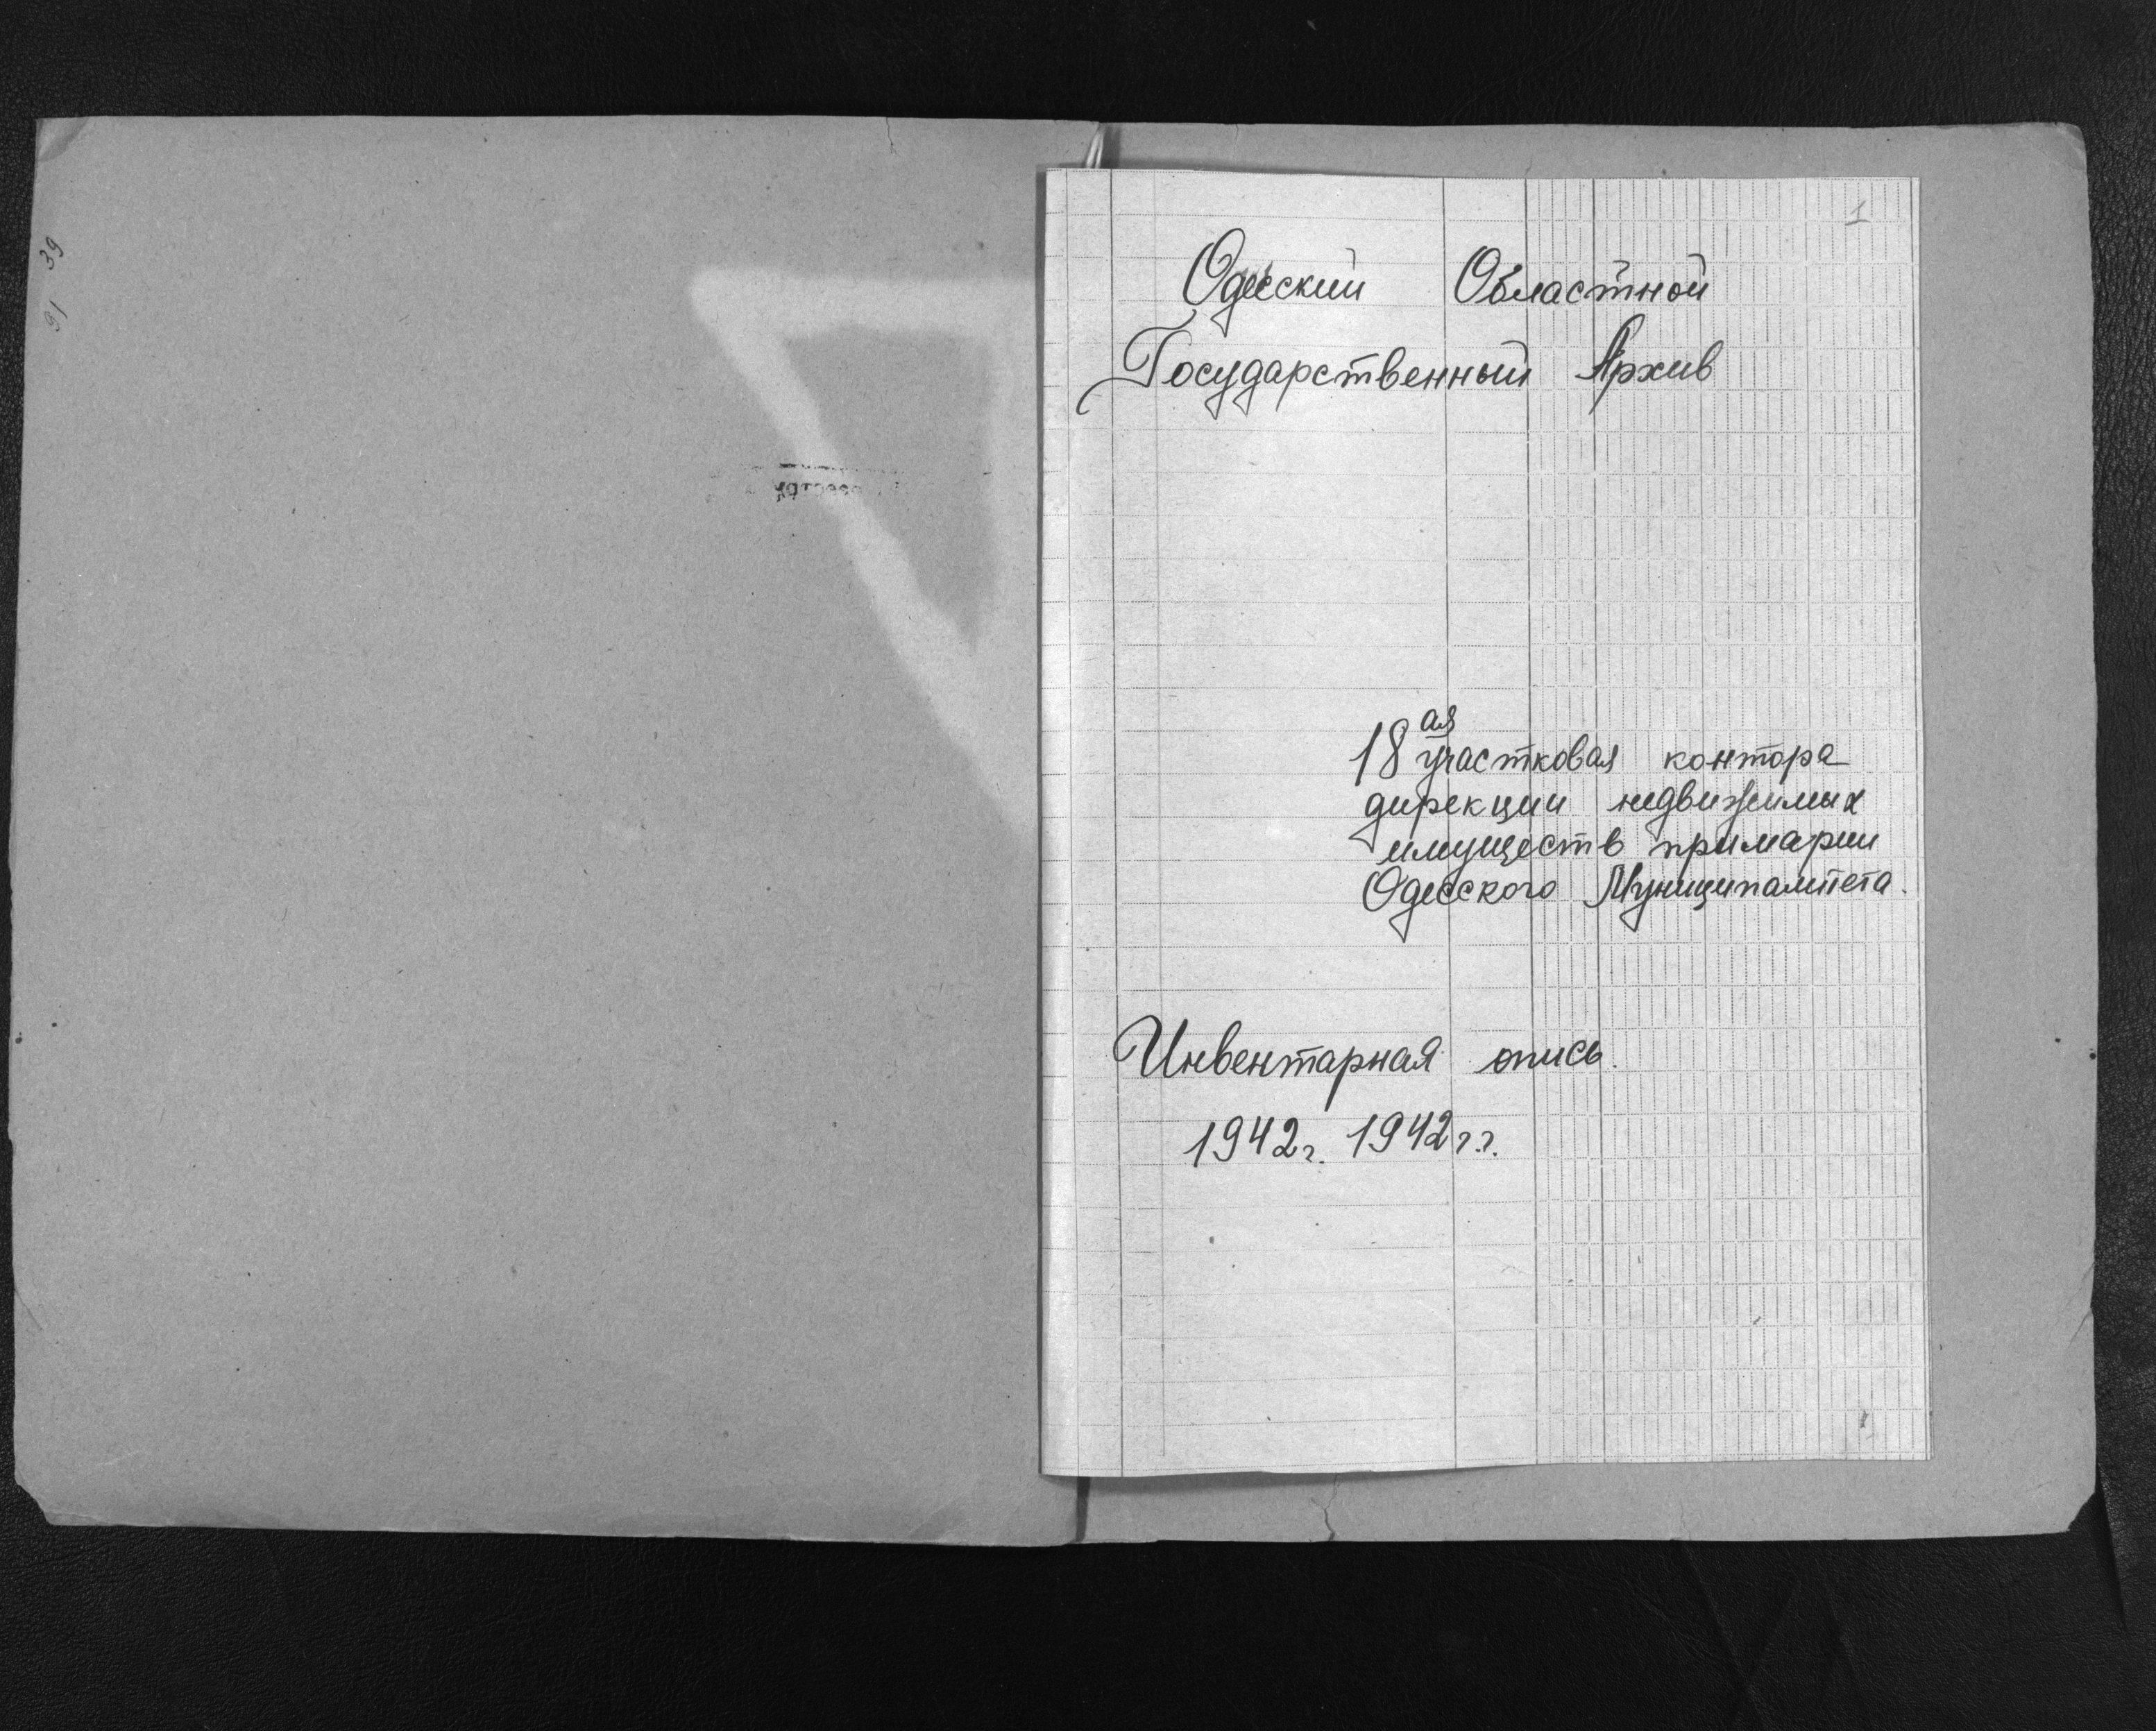 39
91
1
Одесский Областной
Государственный Архив
18 ая участковая контора
дирекции недвижимых
имуществ примарии
Одесского Муниципалитета.
Инвентарная опись.
1942г. 1942г.г.